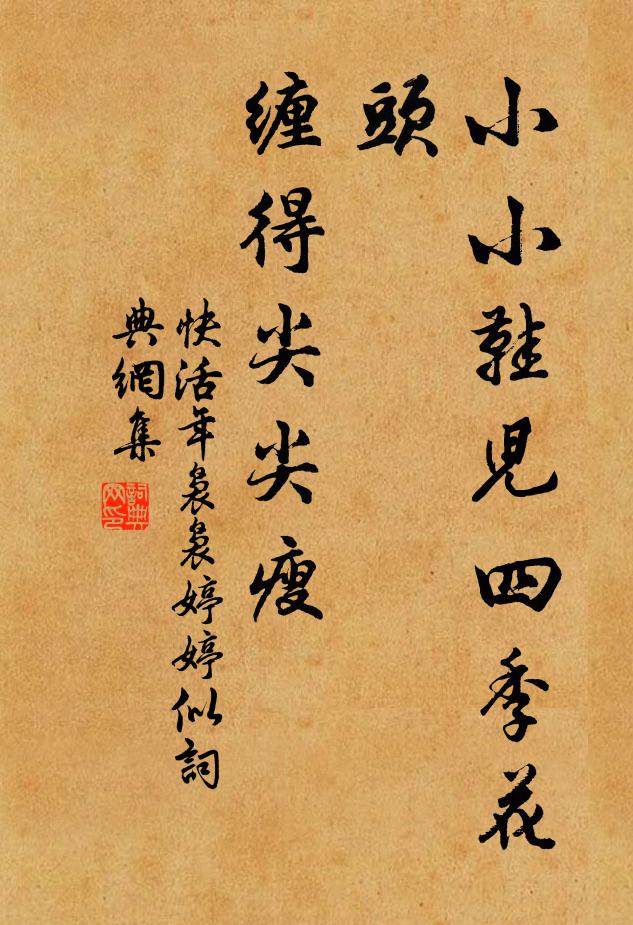 小小鞋児四季花
頭
纏得尖尖瘦
快活年裊裊婷婷似詞
典網集
詞典網印